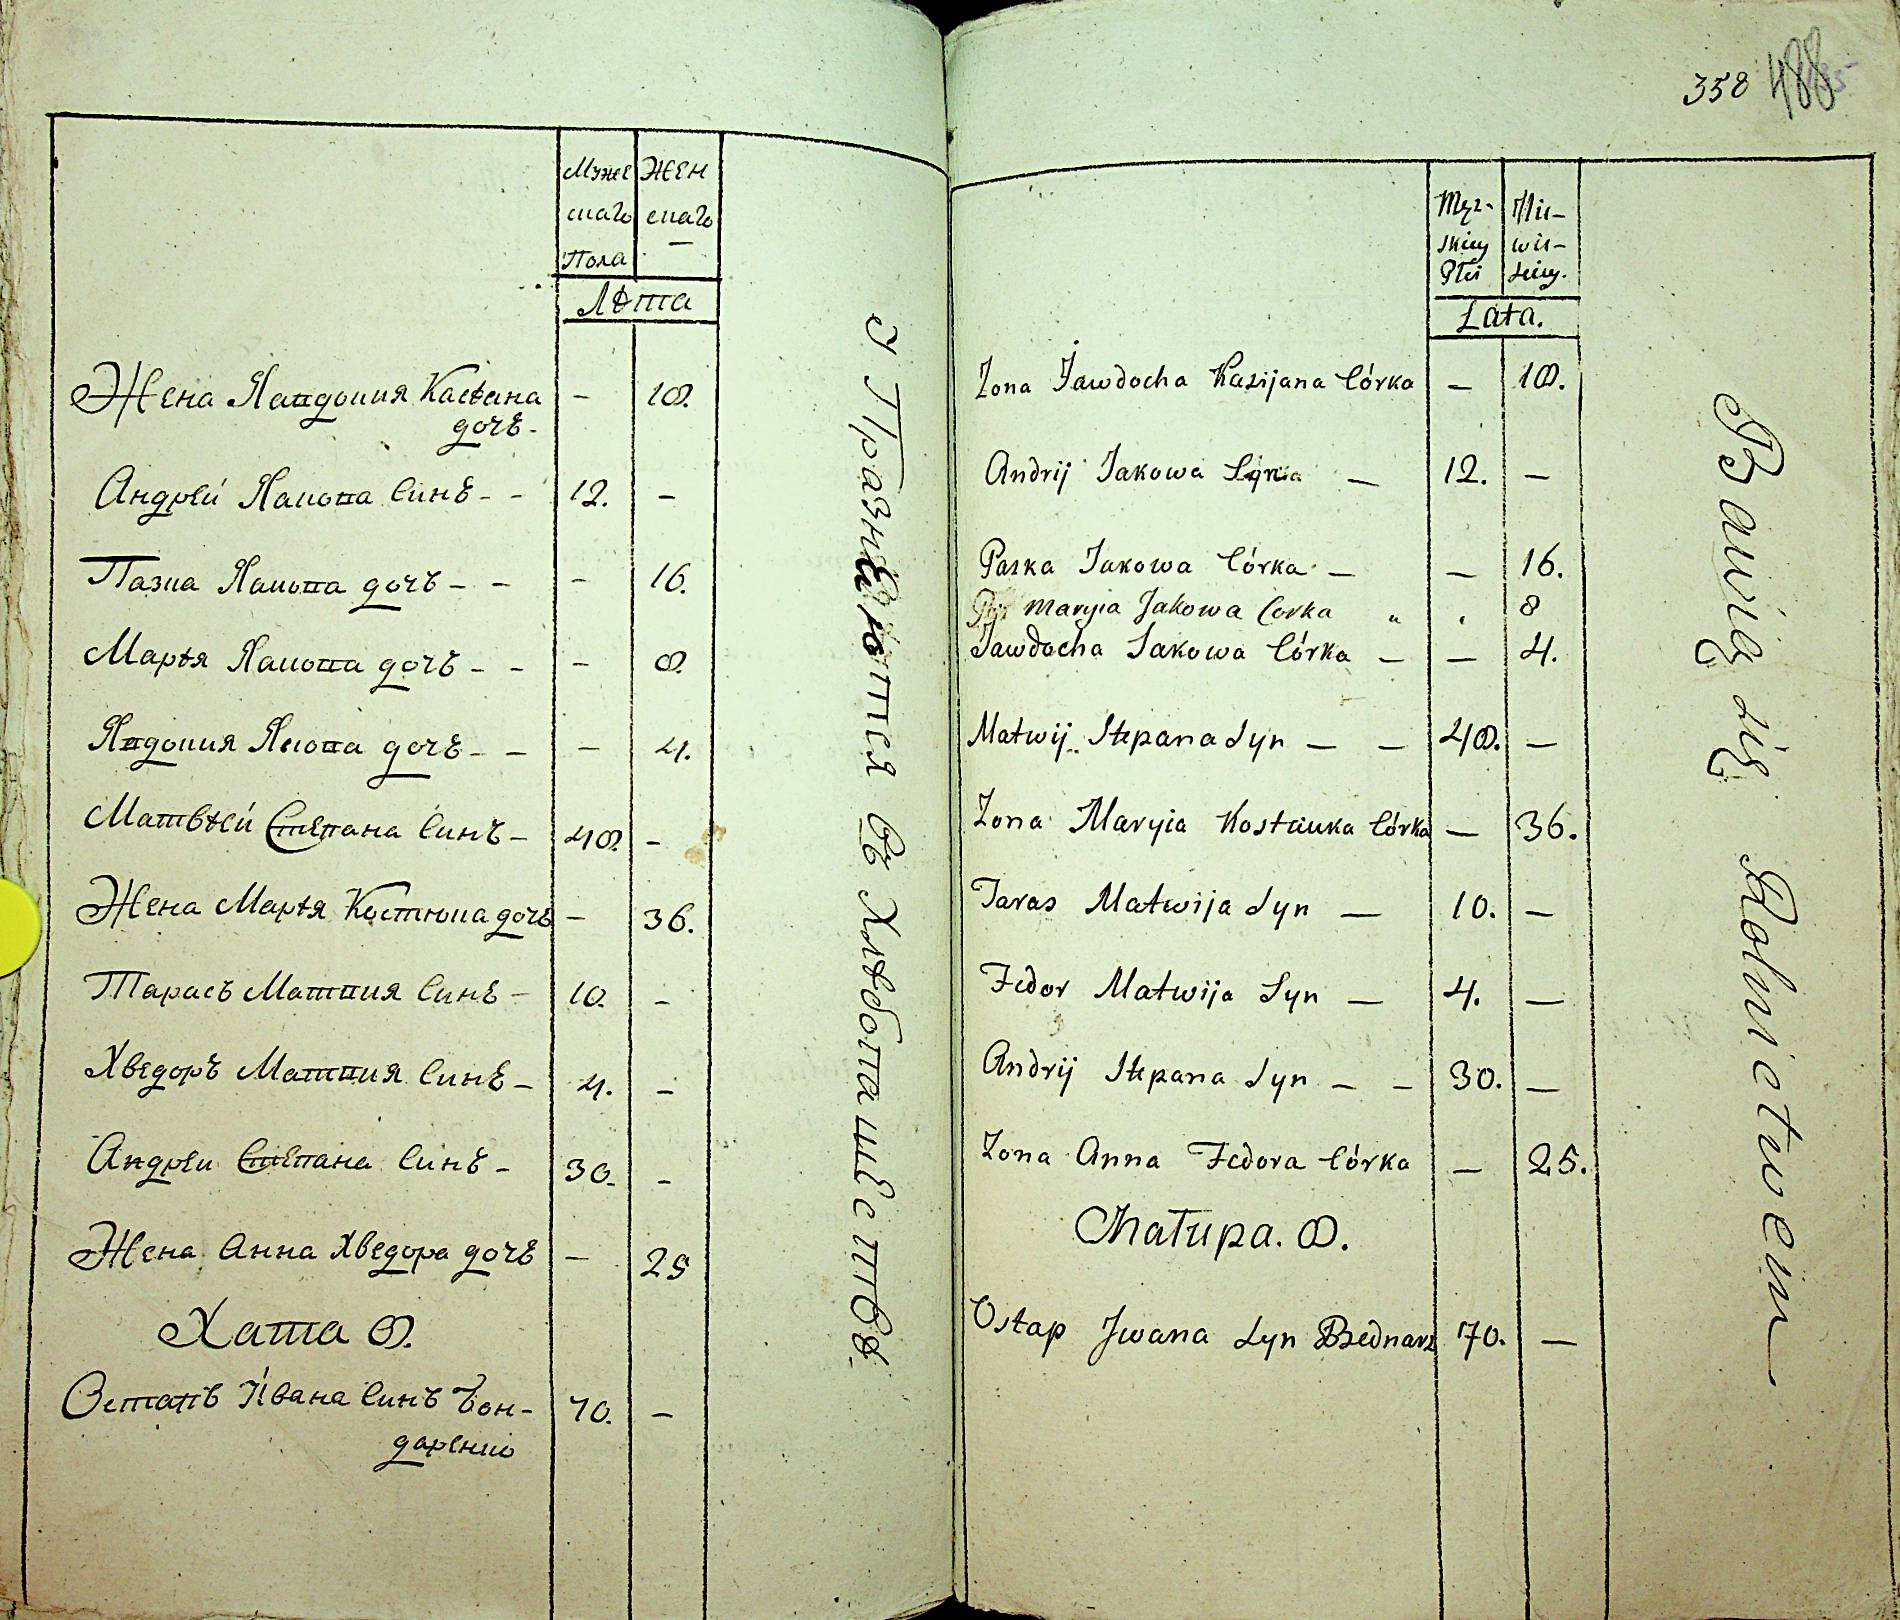 Муже Жен
скаго скаго
Пола
Лѣта
Жена Явдокия Касѣяна - 18.
дочъ -
Андрѣй Якова Синъ - - 12. -
Пазка Якова дочъ - - - 16.
Марѣя Якова дочъ - - - 8
Явдокия Якова дочъ - - - 4.
Матвѣй Степана Синъ - 48. -
Жена Марѣя Костюка дочъ - 36.
Тарасъ Матвия Синъ - 10. -
Хведоръ Матвия Синъ - 4. -
Андрѣи Степана Синъ - 30. -
Жена Анна Хведора дочъ - 25
Хата 8.
Остапъ Ивана Синъ Бон- 70. -
даренко
въ Хлѣбопашествѣ.
358 488
Męz- Niе-
skiey wie-
Płci skiey.
Lata.
Zona Jawdocha Kasijana Córka - 18.
Andrij Jakowa Syn - 12. -
Paska Jakowa Córka - - 16.
Maryia Jakowa Corka " . 8
Jawdocha Jakowa Córka - - 4.
Matwij Stepana Syn - - 48. -
Zona Maryia Kostiuka Córka - 36.
Taras Matwija Syn - 10. -
Fedor Matwija Syn - 4. -
Andrij Stepana Syn - - 30. -
Zona Anna Fedora Córka - 25.
Chatupa. 8.
Ostap Jwana Syn Bednarz 70. -
Bawią się Rolnictwem